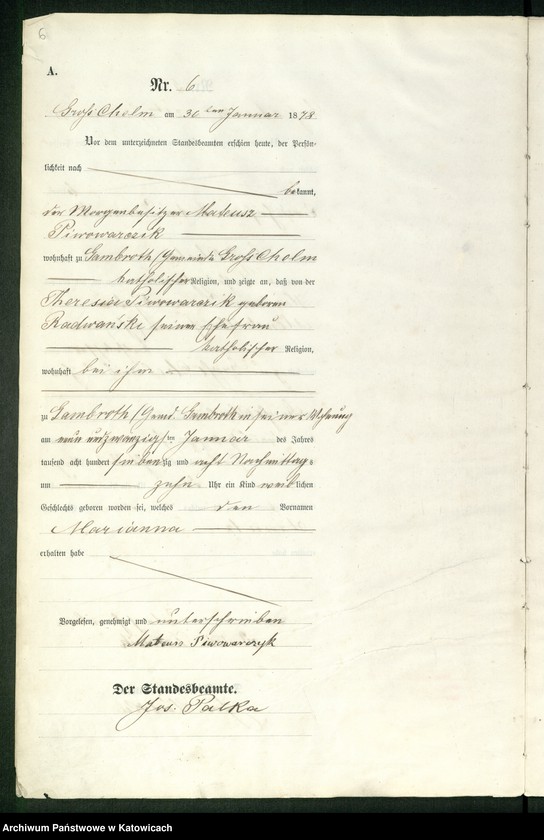 6
A.
Nr. 6
Groß Chelm am 30 ten Januar 1878
Vor dem unterzeichneten Standesbeamten erschien heute, der Persön-
lichkeit nach
bekannt,
der Morgenbesitzer Mateusz
Piwowarczik
wohnhaft zu Gambroth / Gemeinde Groß Chelm
katholischer Religion, und zeigte an, daß von der
Theresia Piwowarczik geboren
Radwański seiner Ehefrau
katholischer Religion,
wohnhaft bei ihm
zu Gambroth / Gemd. Gambroth in seiner Wohnung
am neun und zwanzigsten Januar des Jahres
tausend acht hundert siebenzig und acht Nachmittags
um zehn Uhr ein Kind weiblichen
Geschlechts geboren worden sei, welches den Vornamen
Marianna
erhalten habe
Vorgelesen, genehmigt und unterschrieben
Mateus Piwowarczyk
Der Standesbeamte.
Jos. Palka
Archiwum Państwowe w Katowicach